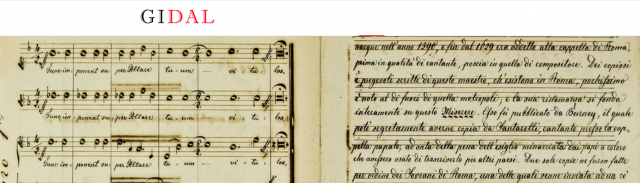 GIDAL
Tunc im- ponent su- per Altare tu- um vi- tu- los.
Tunc im- ponent su- per Altare tu- um vi- tu- los.
Tunc im- ponent su- per Altare tu- um vi- tu- los.
nacque nell'anno e fin dal 1629 era addetto alla cappella di Roma,
prima in qualità di cantante, poscia in quella di compositore. Dei copiosi
e pregevoli scritti di questo maestro, ch'esistono in Roma, pochissimo
è noto al di fuori di quella metropoli; e la sua rinomanza si fonda
interamente su questo Miserere. Esso fu pubblicato da Burney, il quale
potè segretamente averne copia da Santarelli, cantante presso la cap-
pella papale, ad onta della pena dell'esiglio minacciata dai papi a coloro
che avessero osato di trascriverlo per altri paesi. Due sole copie ne furon fatte
per ordine dei Sovrani di Roma, una delle quali venne inviata ad un